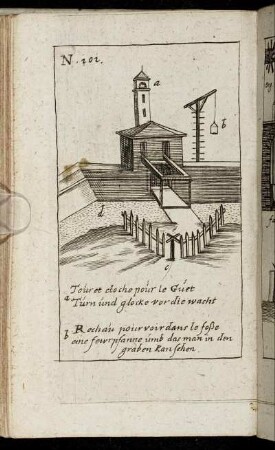 N. 101.
a
b
d
c
Tour et cloche pour le Guet
a Turn und glocke vor die wacht
Rechau pour voir dans le foße
b eine fewrpfanne umb das man in den
graben kan sehen